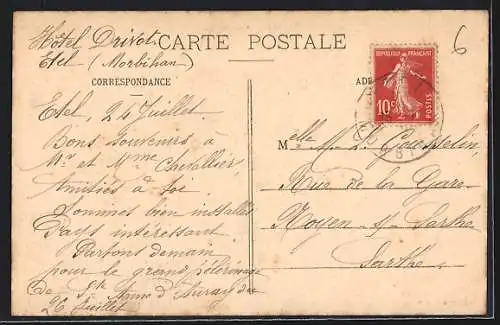 Hôtel Drivot
Etel (Morbihan)
CARTE POSTALE
6
REPUBLIQUE FRANÇAISE
10c
POSTES
CORRESPONDANCE
Etel, 24 Juillet.
Bons Souvenirs à
Mr et Mme Chevallier,
Amitiés à toi.
Sommes bien installés
Pays intéressant.
Partons demain
pour le grand Pélerinage
de Ste Anne d'Auray du
26 Juillet
ADR
Melle M. L. Gousselin,
Rue de la Gare
Noyen s/ Sarthe
Sarthe.